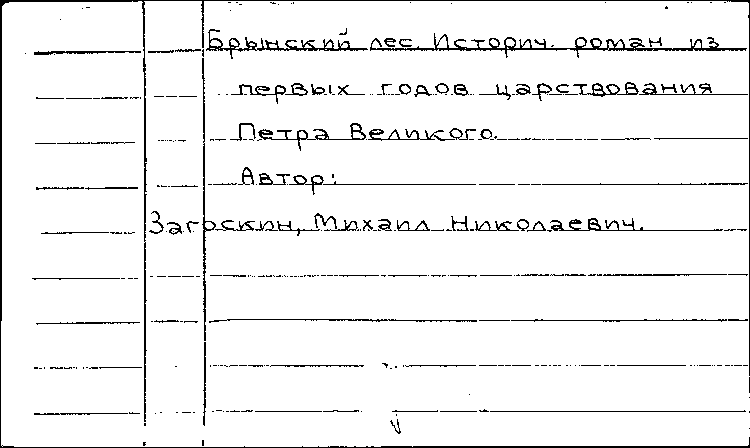 Брынский лес. Историч. роман из
первых годов царствования
Петра Великого.
Автор:
Загоскин, Михаил Николаевич.